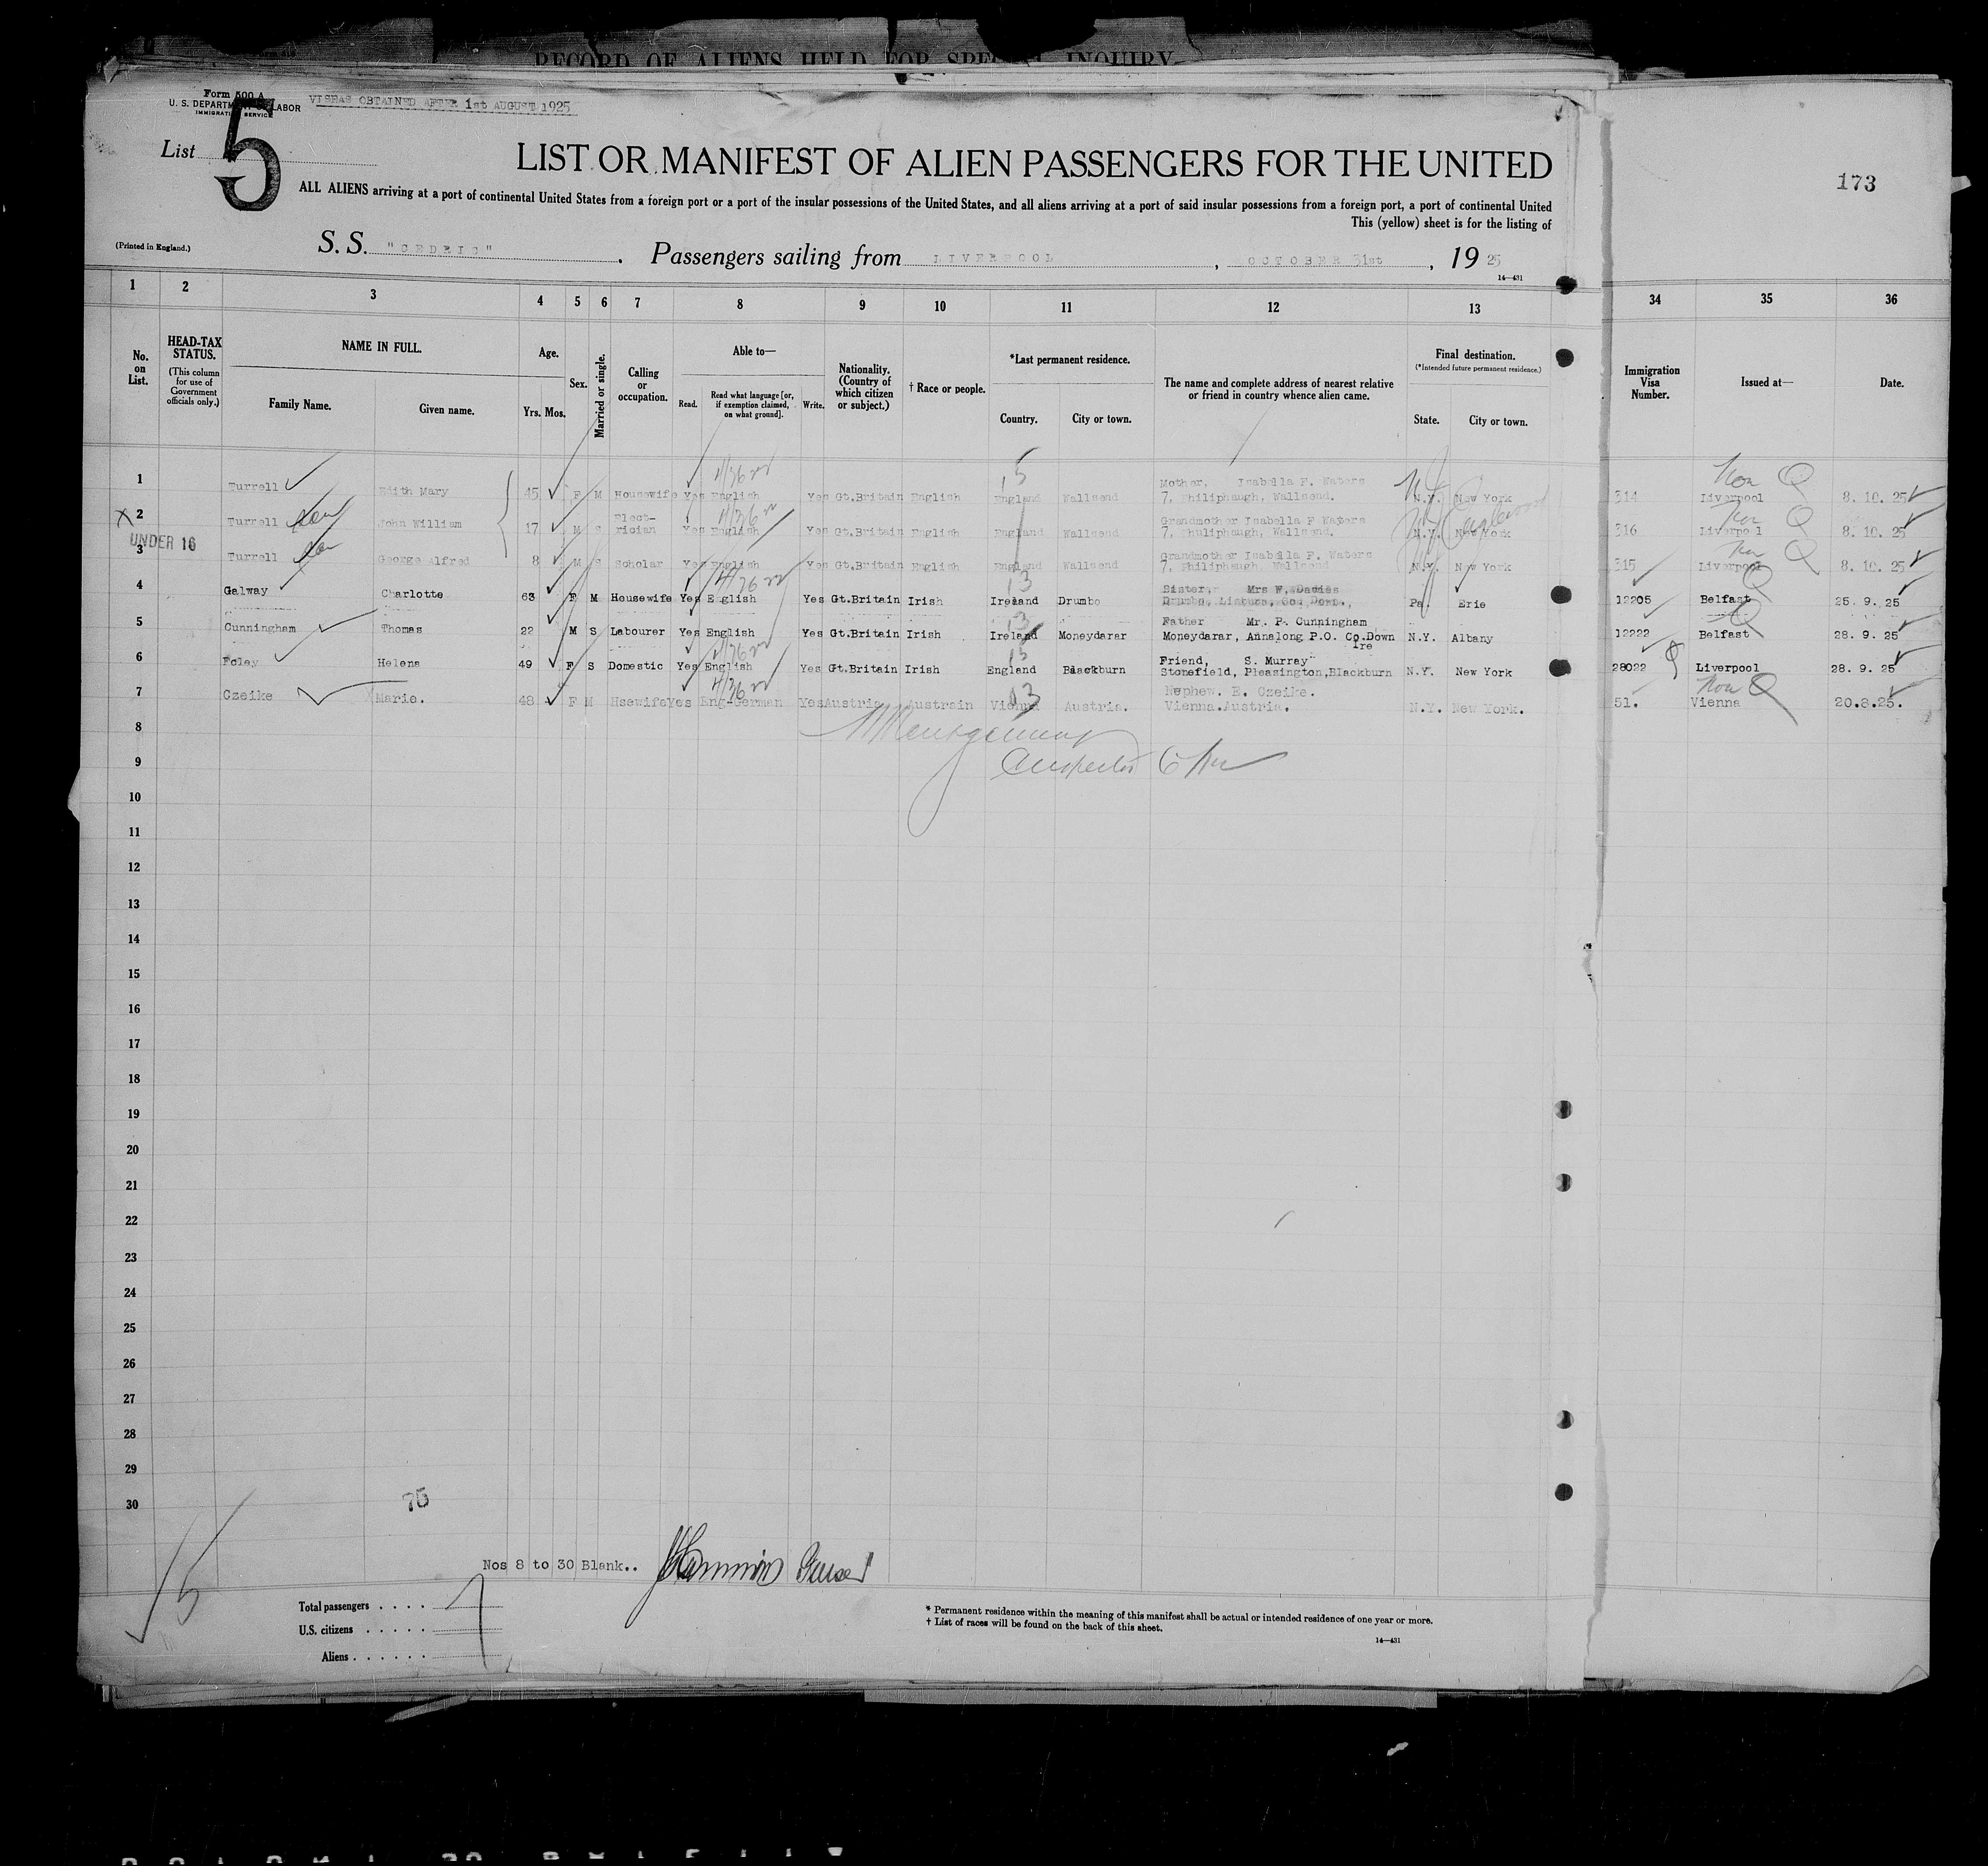 RECORD OF ALIENS HELD FOR SPECIAL INQUIRY
Form 500 A
U. S. DEPARTMENT OF LABOR
IMMIGRATION SERVICE
VISEAS OBTAINED AFTER 1st AUGUST 1925
List 5
LIST OR MANIFEST OF ALIEN PASSENGERS FOR THE UNITED
173
ALL ALIENS arriving at a port of continental United States from a foreign port or a port of the insular possessions of the United States, and all aliens arriving at a port of said insular possessions from a foreign port, a port of continental United
This (yellow) sheet is for the listing of
(Printed in England.)
S. S. "CEDRIC". Passengers sailing from LIVERPOOL, OCTOBER 31st, 1925
14—431
1 2 3 4 5 6 7 8 9 10 11 12 13 34 35 36
No. on List.
HEAD-TAX STATUS.
(This column for use of Government officials only.)
NAME IN FULL.
Family Name. Given name.
Age.
Yrs. Mos.
Sex.
Married or single.
Calling or occupation.
Able to—
Read. Read what language [or, if exemption claimed, on what ground]. Write.
Nationality. (Country of which citizen or subject.)
† Race or people.
*Last permanent residence.
Country. City or town.
The name and complete address of nearest relative or friend in country whence alien came.
Final destination.
(*Intended future permanent residence.)
State. City or town.
Immigration Visa Number.
Issued at—
Date.
1 Turrell Edith Mary 45 F M Housewife Yes English Yes Gt.Britain English England Wallsend Mother, Isabella F. Waters 7, Philiphaugh, Wallsend. N.Y. New York 314 Liverpool 8. 10. 25
X 2 Turrell John William 17 M S Elect-rician Yes English Yes Gt.Britain English England Wallsend Grandmother Isabella F Waters 7, Phuliphaugh, Wallsend. N.Y. New York 316 Liverpool 8. 10. 25
UNDER 16
3 Turrell George Alfred 8 M S Scholar Yes English Yes Gt.Britain English England Wallsend Grandmother Isabella F. Waters 7, Philiphaugh, Wallsend N.Y. New York 315 Liverpool 8. 10. 25
4 Galway Charlotte 63 F M Housewife Yes English Yes Gt.Britain Irish Ireland Drumbo Sister, Mrs F. Davies Drumbo, Lisburn, Co. Down., Pa. Erie 12205 Belfast 25. 9. 25
5 Cunningham Thomas 22 M S Labourer Yes English Yes Gt.Britain Irish Ireland Moneydarar Father Mr. P. Cunningham Moneydarar, Annalong P.O. Co.Down Ire N.Y. Albany 12222 Belfast 28. 9. 25
6 Foley Helena 49 F S Domestic Yes English Yes Gt.Britain Irish England Blackburn Friend, S. Murray Stonefield, Pleasington,Blackburn N.Y. New York 28022 Liverpool 28. 9. 25
7 Czeike Marie. 48 F M Hsewife Yes Eng-German Yes Austria Austrain Vienna Austria. Nephew. E. Czeike. Vienna.Austria. N.Y. New York. 51. Vienna 20.8.25.
8
9
10
11
12
13
14
15
16
17
18
19
20
21
22
23
24
25
26
27
28
29
30
75
Nos 8 to 30 Blank..
Total passengers . . . .
U.S. citizens . . . . .
Aliens . . . . . .
* Permanent residence within the meaning of this manifest shall be actual or intended residence of one year or more.
† List of races will be found on the back of this sheet.
14—431